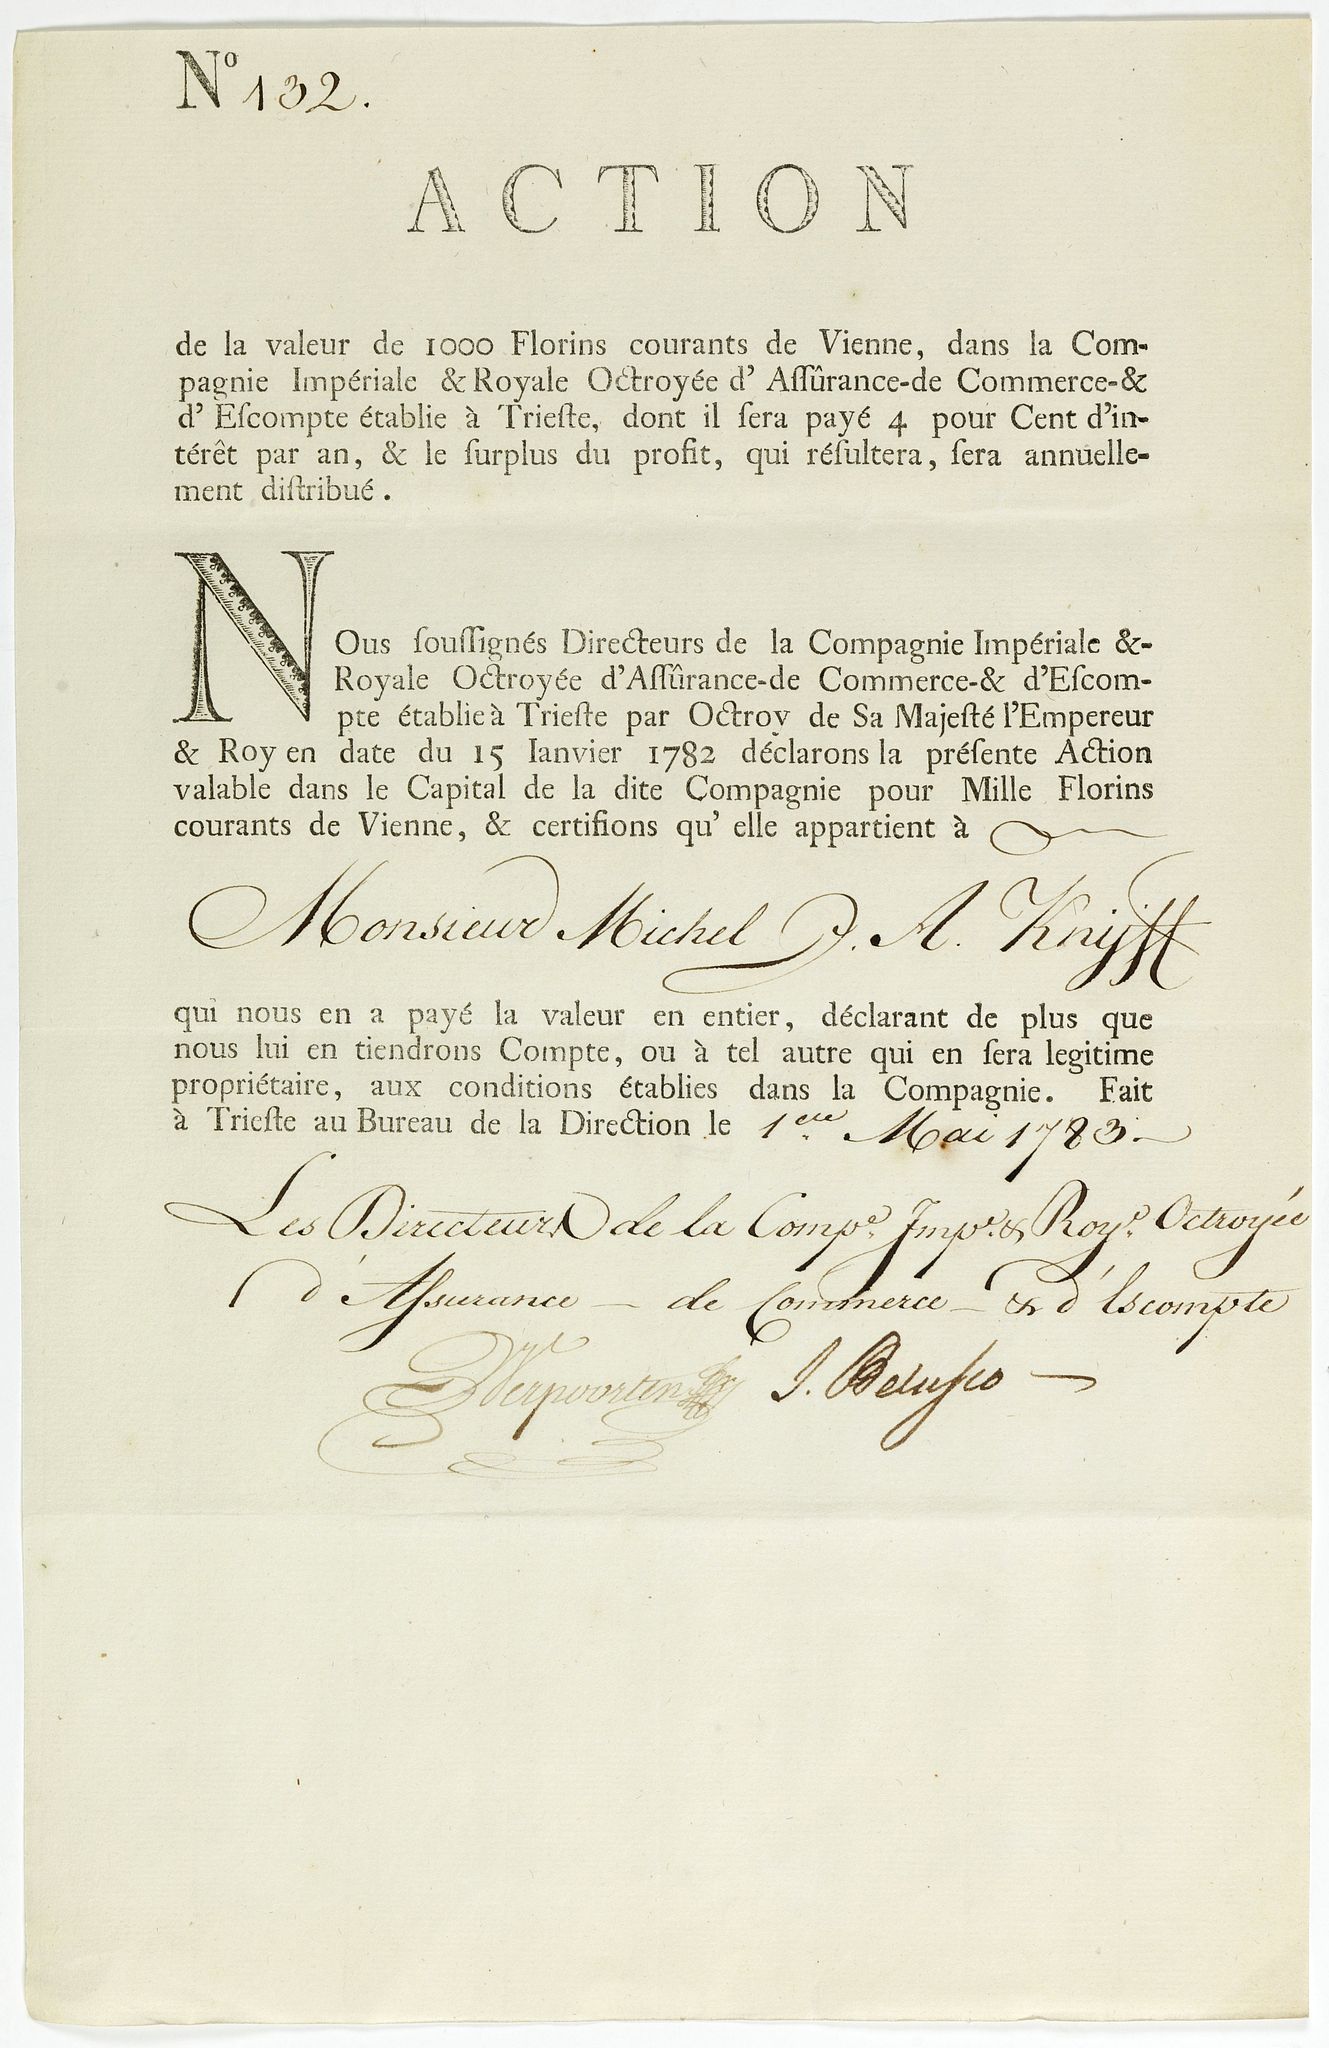 Nº 132.
ACTION
de la valeur de 1000 Florins courants de Vienne, dans la Com-
pagnie Impériale & Royale Octroyée d' Aſſûrance-de Commerce-&
d' Eſcompte établie à Trieſte, dont il ſera payé 4 pour Cent d'in-
térêt par an, & le ſurplus du profit, qui réſultera, ſera annuelle-
ment diſtribué.
NOus ſouſſignés Directeurs de la Compagnie Impériale &-
Royale Octroyée d'Aſſûrance-de Commerce-& d'Eſcom-
pte établie à Trieſte par Octroy de Sa Majeſté l'Empereur
& Roy en date du 15 Ianvier 1782 déclarons la préſente Action
valable dans le Capital de la dite Compagnie pour Mille Florins
courants de Vienne, & certifions qu' elle appartient à
Monsieur Michel J. A. Knijff
qui nous en a payé la valeur en entier, déclarant de plus que
nous lui en tiendrons Compte, ou à tel autre qui en ſera legitime
propriétaire, aux conditions établies dans la Compagnie. Fait
à Trieſte au Bureau de la Direction le 1ere Mai 1783.
Les Directeurs de la Compe. Impe. & Roye. Octroyée
d'Aſsurance - de Commerce - & d'Escompte
Verpoorten J. Beluſco